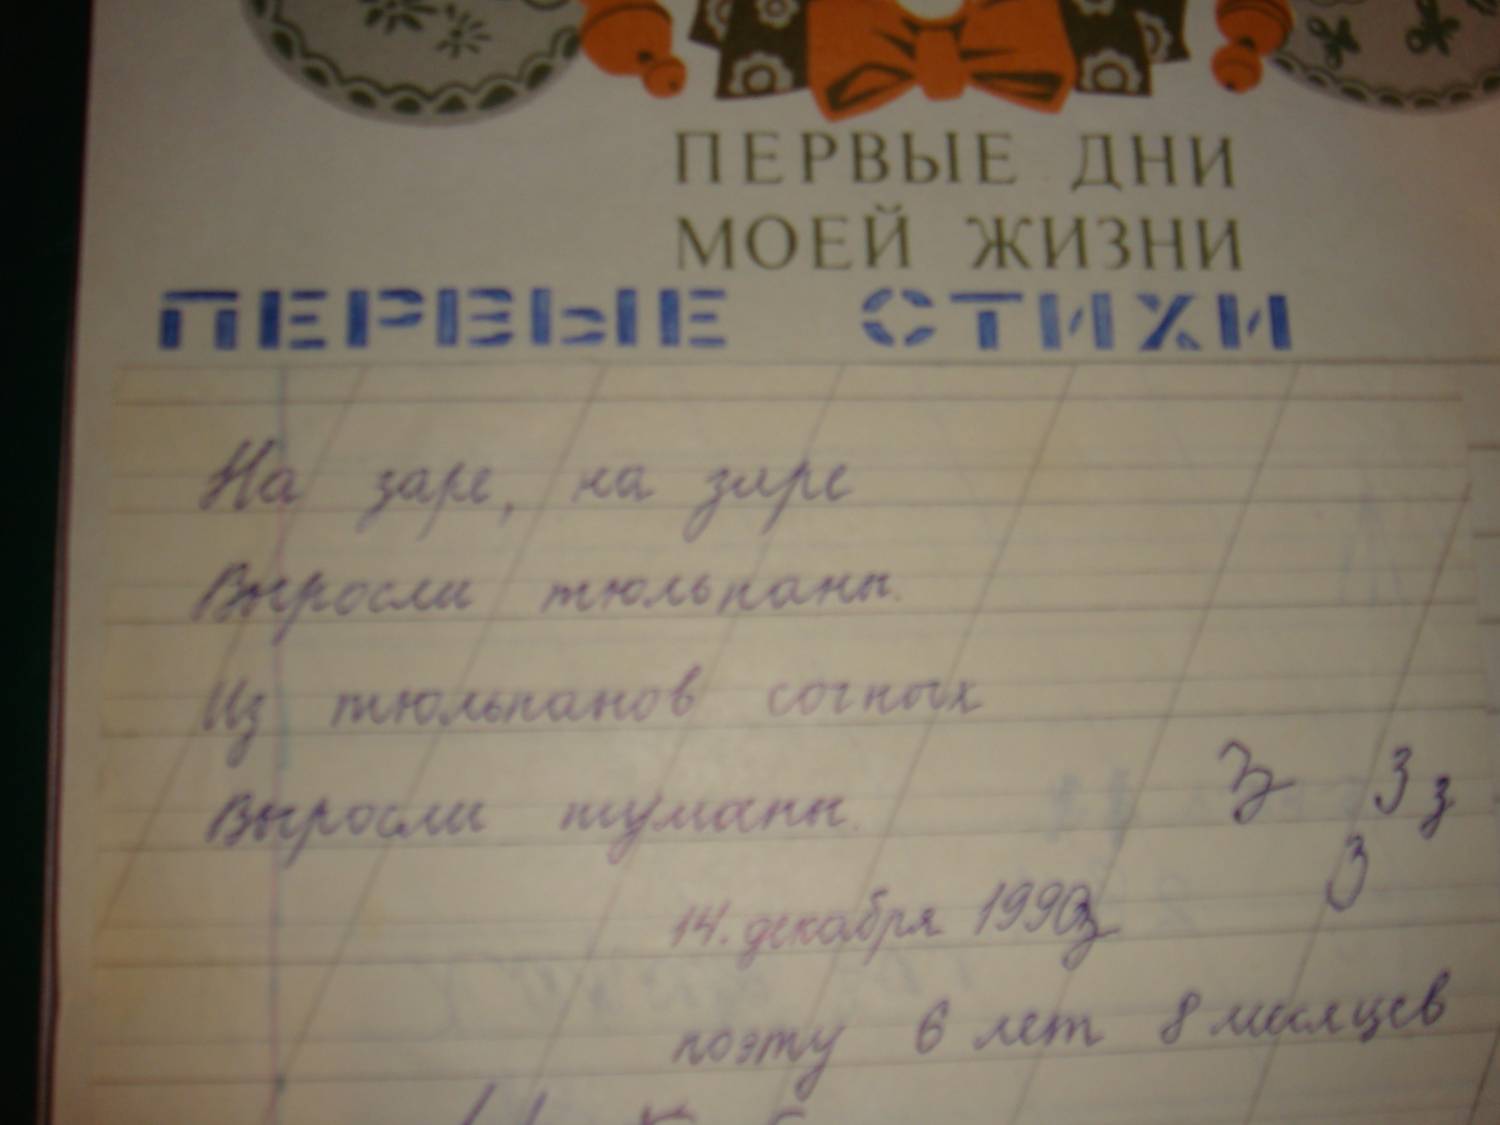 ПЕРВЫЕ ДНИ
МОЕЙ ЖИЗНИ
ПЕРВЫЕ СТИХИ
На заре, на заре
Выросли тюльпаны.
Из тюльпанов сочных
Выросли туманы.
З З з
З
14. декабря
поэту 6 лет 8 месяцев